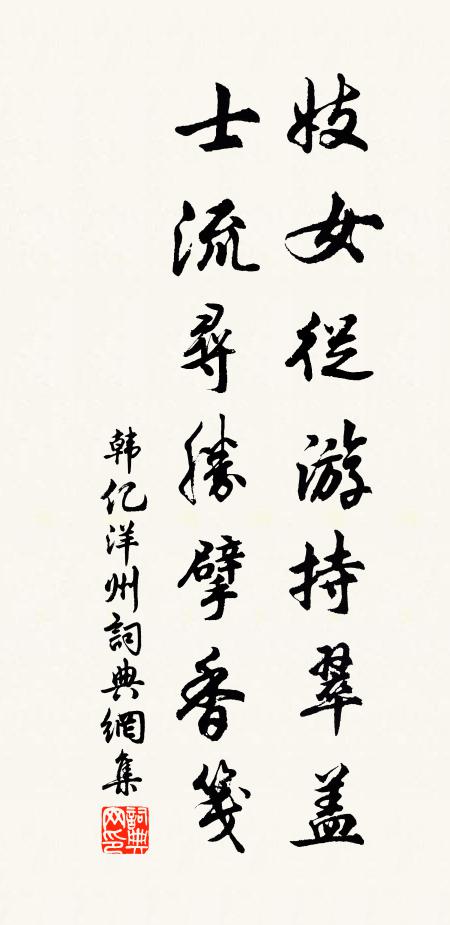 妓女從游持翠盖
士流尋勝擘香箋
韩亿洋州詞典網集
詞典网印